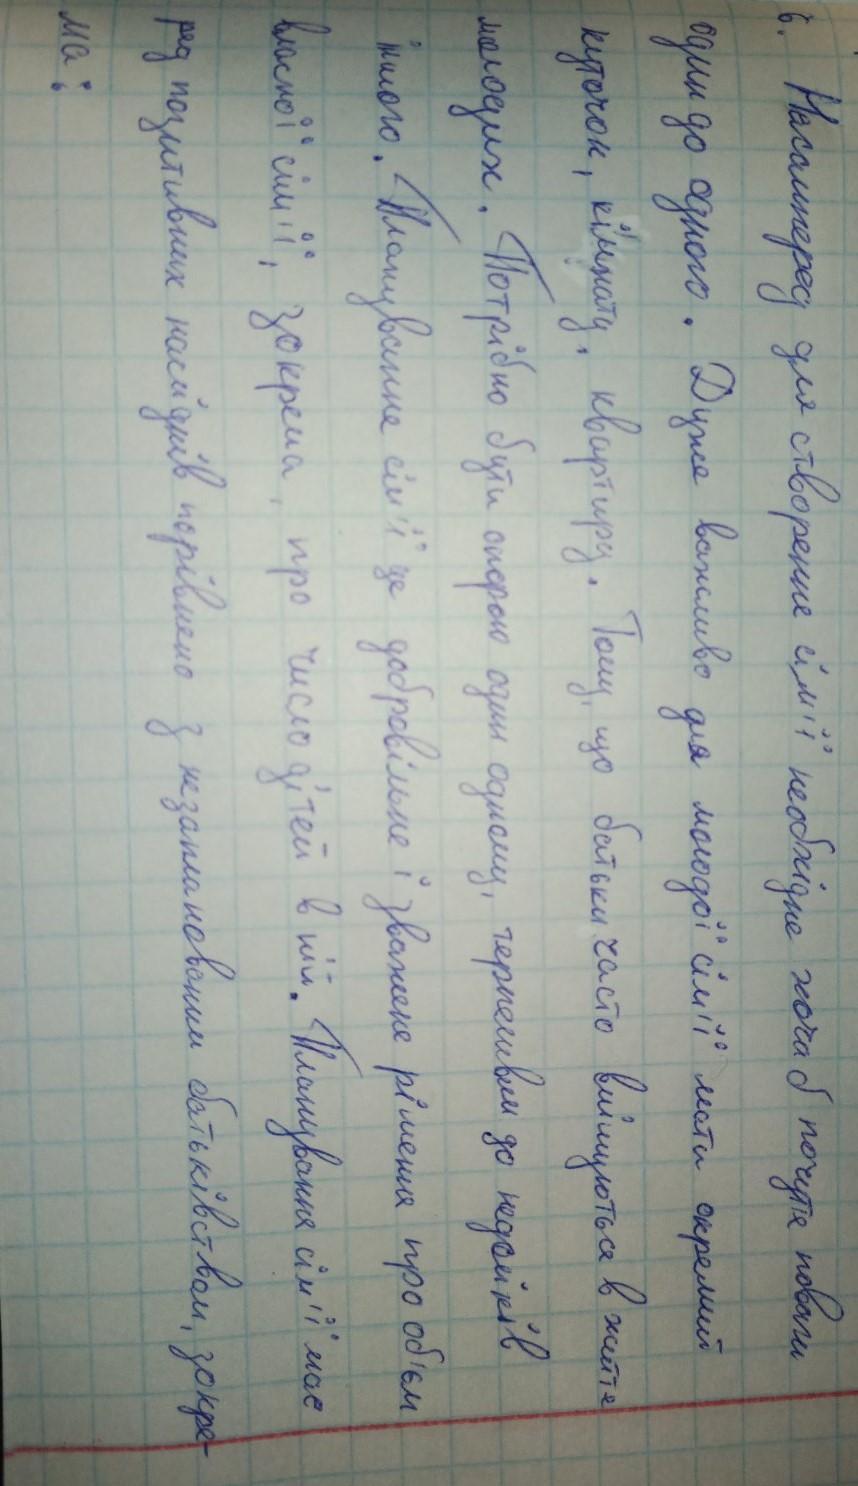 6. Насамперед для створення сім'ї необхідне хоча б почуття поваги
один до одного. Дуже важливо для молодої сім'ї мати окремий
куточок, кімнату, квартиру. Тому, що батьки часто вмішуються в життя
молодих. Потрібно бути опорою один одному, терпеливим до недоліків
іншого. Планування сім'ї це добровільне і зважене рішення про об'єм
власної сім'ї, зокрема, про число дітей в ній. Планування сім'ї має
ряд позитивних наслідків порівняно з незапланованим батьківством, зокре-
ма: